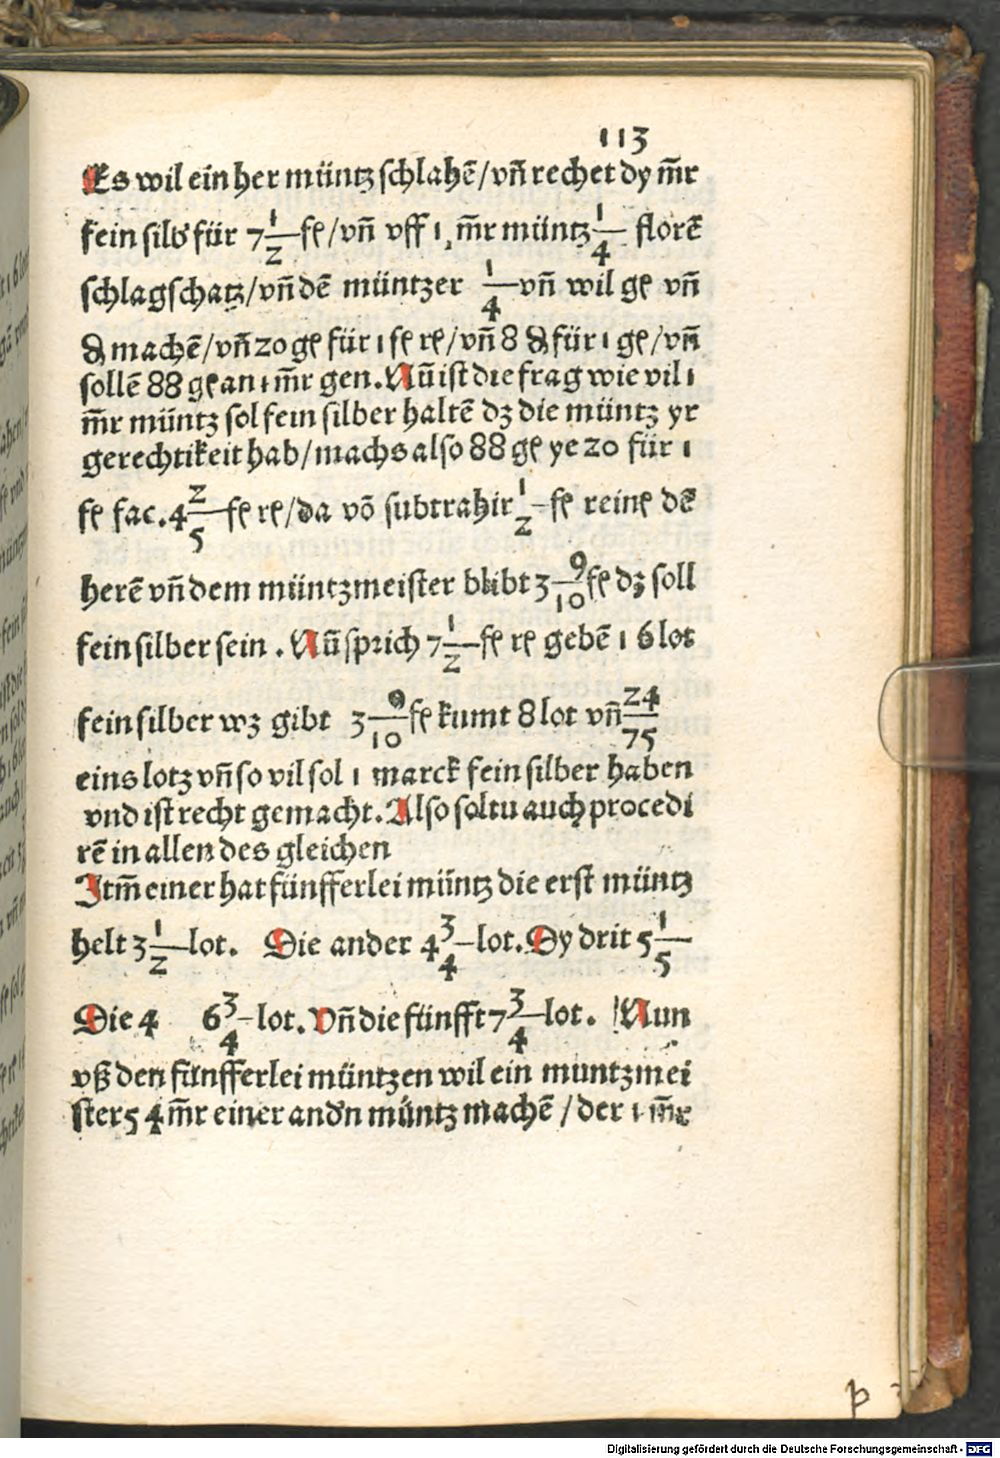 113
Es wil ein her müntz schlahē/vn̄ rechet dy m̄r
fein silb' für 7 1/2 fl/vn̄ vff 1 m̄r müntz 1/4 florē
schlagschatz/vn̄ dē müntzer 1/4 vn̄ wil gl vn̄
₰ machē/vn̄ 20 gl für 1 fl rl/vn̄ 8 ₰ für 1 gl/vn̄
sollē 88 gl an 1 m̄r gen. Nū ist die frag wie vil 1
m̄r müntz sol fein silber haltē dz die müntz yr
gerechtikeit hab/machs also 88 gl ye 20 für 1
fl fac. 4 2/5 fl rl/da vō subtrahir 1/2 fl reinl dē
herē vn̄ dem müntzmeister blibt 3 9/10 fl dz soll
fein silber sein. Nū sprich 7 1/2 fl rl gebē 16 lot
fein silber wz gibt 3 9/10 fl kumt 8 lot vn̄ 24/75
eins lotz vn̄ so vil sol 1 marck fein silber haben
vnd ist recht gemacht. Also soltu auch procedi
rē in allen des gleichen
Itm̄ einer hat fünfferlei müntz die erst müntz
helt 3 1/2 lot. Die ander 4 3/4 lot. Dy drit 5 1/5
Die 4 6 3/4 lot. Vn̄ die fünfft 7 3/4 lot. Nun
vß den fünfferlei müntzen wil ein muntzmei
ster 54 m̄r einer and'n müntz machē/der 1 m̄r
p
Digitalisierung gefördert durch die Deutsche Forschungsgemeinschaft - DFG